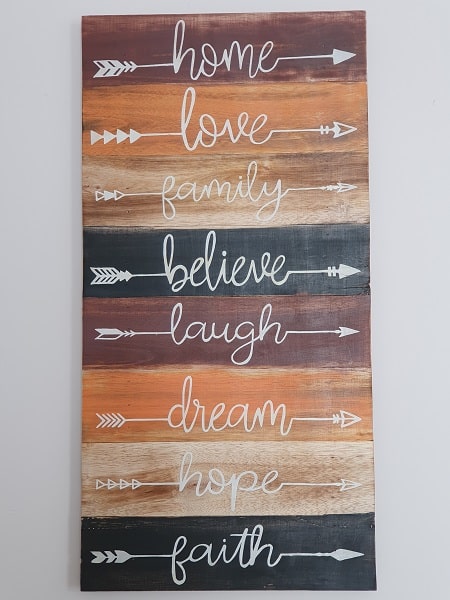 home
love
family
believe
laugh
dream
hope
faith